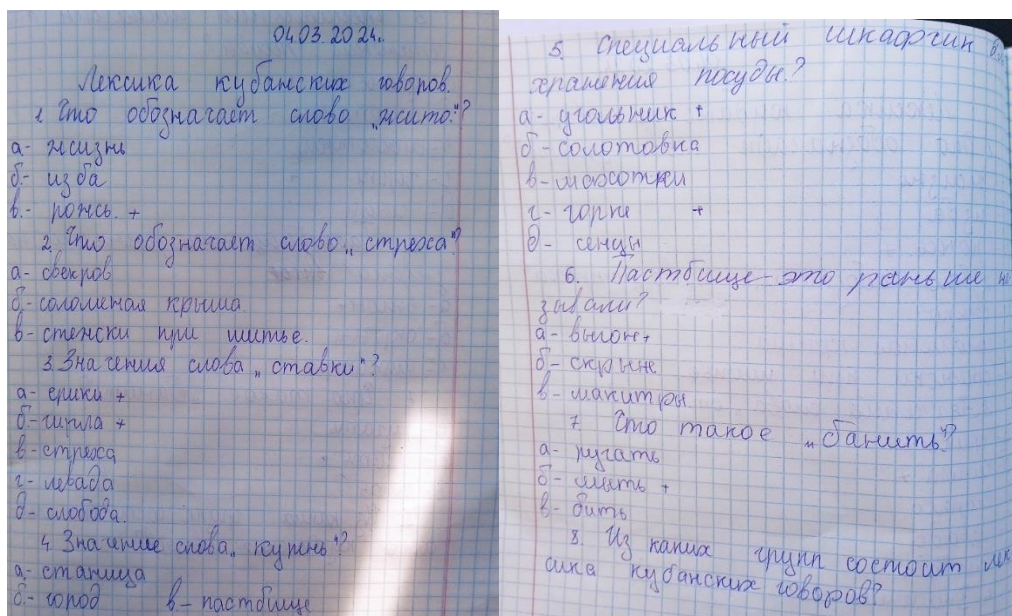 04.03.2024г.
Лексика кубанских говоров.
1. Что обозначает слово „жито"?
а- жизнь
б- изба
в- рожь. +
2. Что обозначает слово „стреха"?
а- свекров
б- соломеная крыша
в- стежски при шитье.
3. Значения слова „ставки"?
а- ерики +
б- гирла +
в- стреха
г- левада
д- слобода.
4. Значение слова „куть"?
а- станица
б- город в- пастбище
5. Специальный шкафчик
хранения посуды?
а- угольник +
б- солотовка
в- мажотки
г- горка +
д- сенцы
6. Пастбище - это раньше на
зывали?
а- выгон +
б- скрыне
в- макитры
7. Что такое „банить"?
а- ругать
б- мыть +
в- бить
8. Из каких групп состоит лек
сика кубанских говоров?